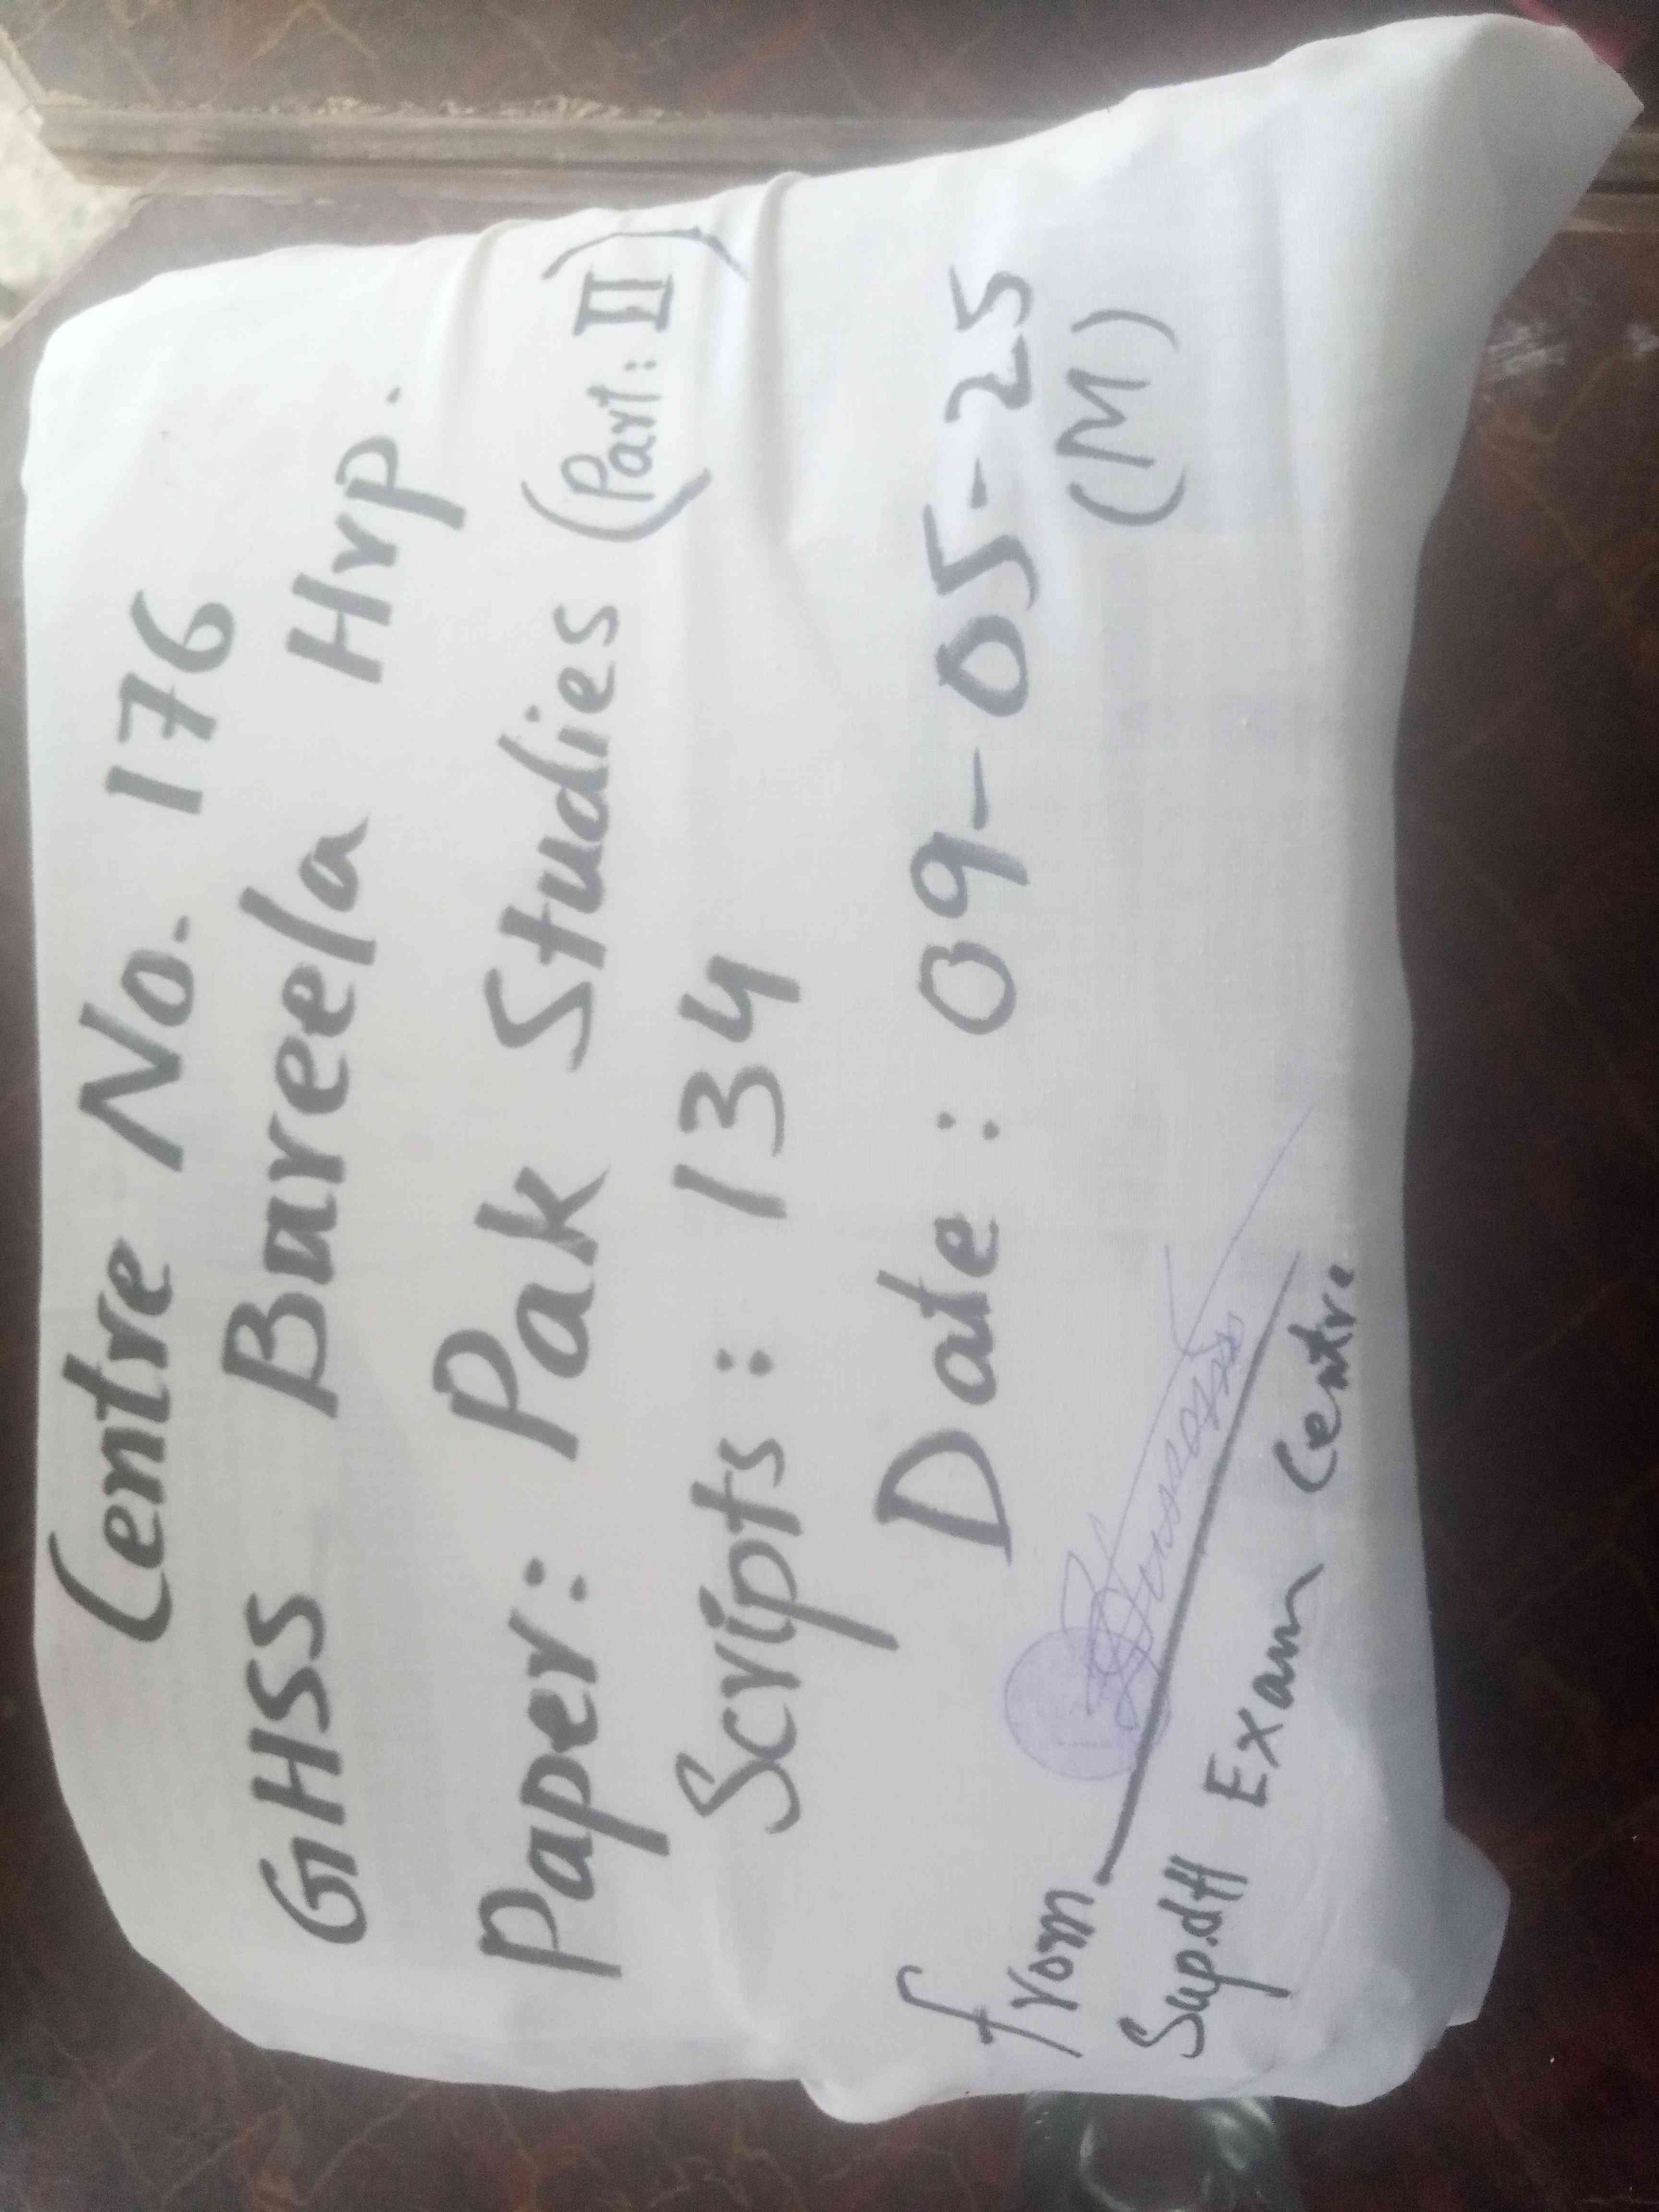 Centre No. 176
GHSS Bareela Hrp.
Paper: Pak Studies (Part: II)
Scripts: 134
Date: 09-05-25
(M)
from
Sup.dtt Exam Centre